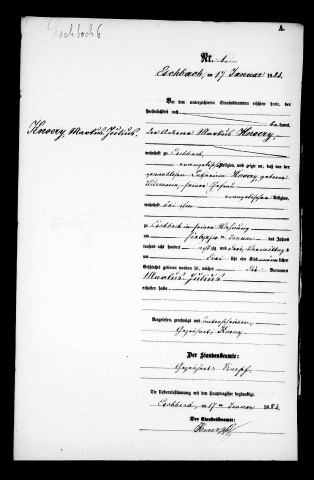 Eschbach 6
A.
Nr. 1.
Eschbach, am 17 Januar 1883.
Vor dem unterzeichneten Standesbeamten erschien heute, der
Persönlichkeit nach
be kannt,
der Ackerer Markus Knoery,
Knoery, Markus Julius.
wohnhaft zu Eschbach,
evangelischer Religion, und zeigte an, daß von der
Knoery, geborene
seiner Ehefrau
evangelischer Religion,
wohnhaft bei ihm
zu Eschbach in seiner Wohnung
am Januar des Jahres
tausend acht hundert achtzig und drei, Vormittags
um drei Uhr ein Kind männlichen
Geschlechts geboren worden sei, welches die Vornamen
Markus Julius
erhalten habe.
Vorgelesen, genehmigt und unterschrieben
Gezeichnet: Knoery
Der Standesbeamte:
Gezeichnet: Knapf.
Die Uebereinstimmung mit dem Hauptregister beglaubigt
Eschbach, am 17ten Januar 1883.
Der Standesbeamte: